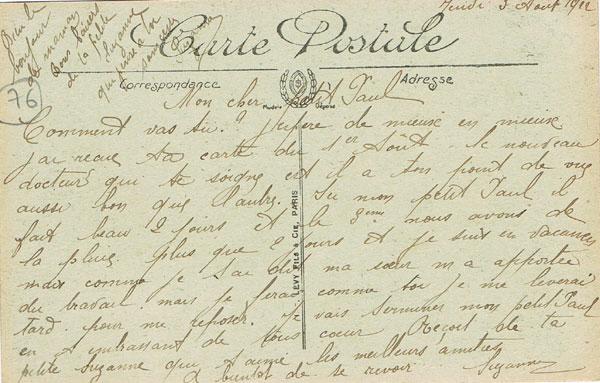 Jeudi 3 Août 1922
Bonjour
de maman
Bons baisers
de ta petite
Suzanne
qui
76
Carte Postale
Correspondance
Adresse
Mon cher petit Paul
Comment vas tu? J'espère de mieux en mieux
j'ai reçue ta carte du 1er Août. Le nouveau
docteur qui te soigne est il a ton point de vue
aussi bon que l'autre. Tu mon petit Paul il
fait beau 2 jours et le 3ème nous avons de
la pluie. Plus que 2 jours et je suis en vacances
mais comme je t'ai dit ma sœur m'a apportée
du travail mais je ferai comme toi je me leverai
tard pour me reposer. Je vais terminer mon petit Paul
en t'embrassant de tout cœur Reçoit de ta
petite Suzanne qui t'aime les meilleurs amitiés
A bientot de te revoir Suzanne
LEVY FILS & Cie, PARIS